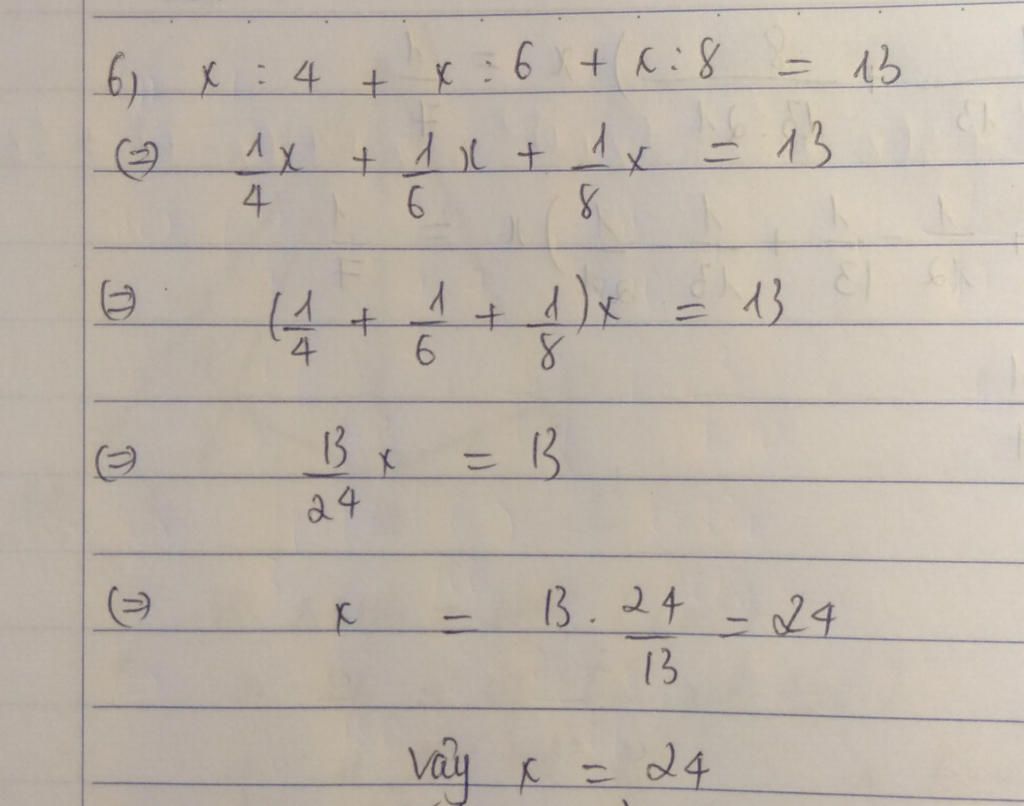 6) x : 4 + x : 6 + x : 8 = 13
(=) 1/4 x + 1/6 x + 1/8 x = 13
(=) (1/4 + 1/6 + 1/8) x = 13
(=) 13/24 x = 13
(=) x = 13 . 24/13 = 24
Vậy x = 24